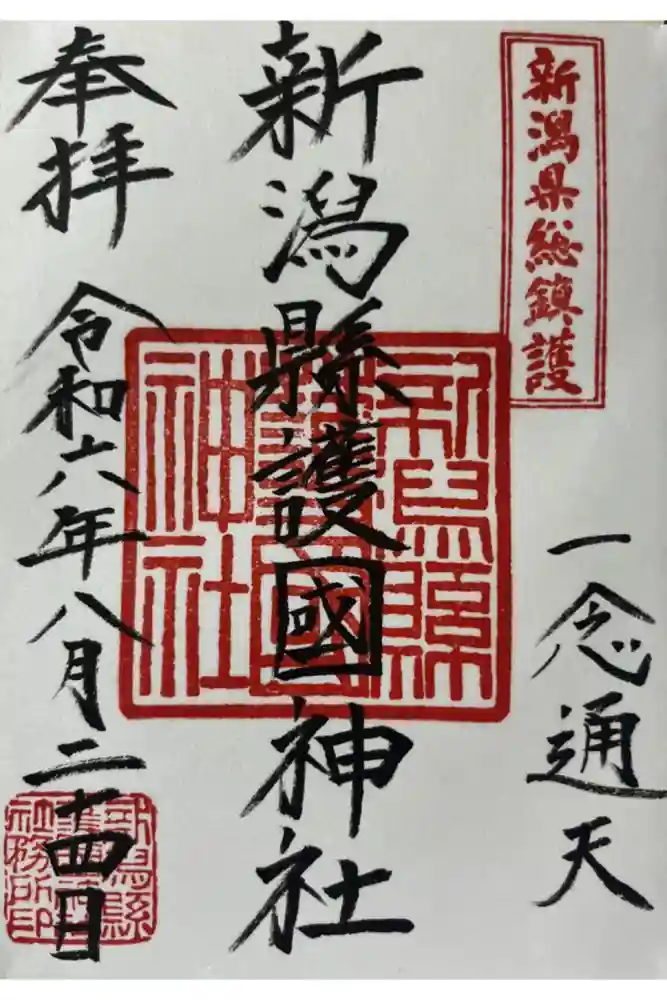 新潟県総鎮護
一念通天
新潟縣護國神社
奉拝
令和六年八月二十四日
新潟縣護國神社
新潟縣護國神社社務所印